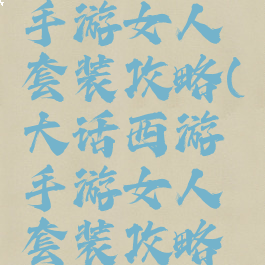 手游女人
套装攻略(
大话西游
手游女人
套装攻略